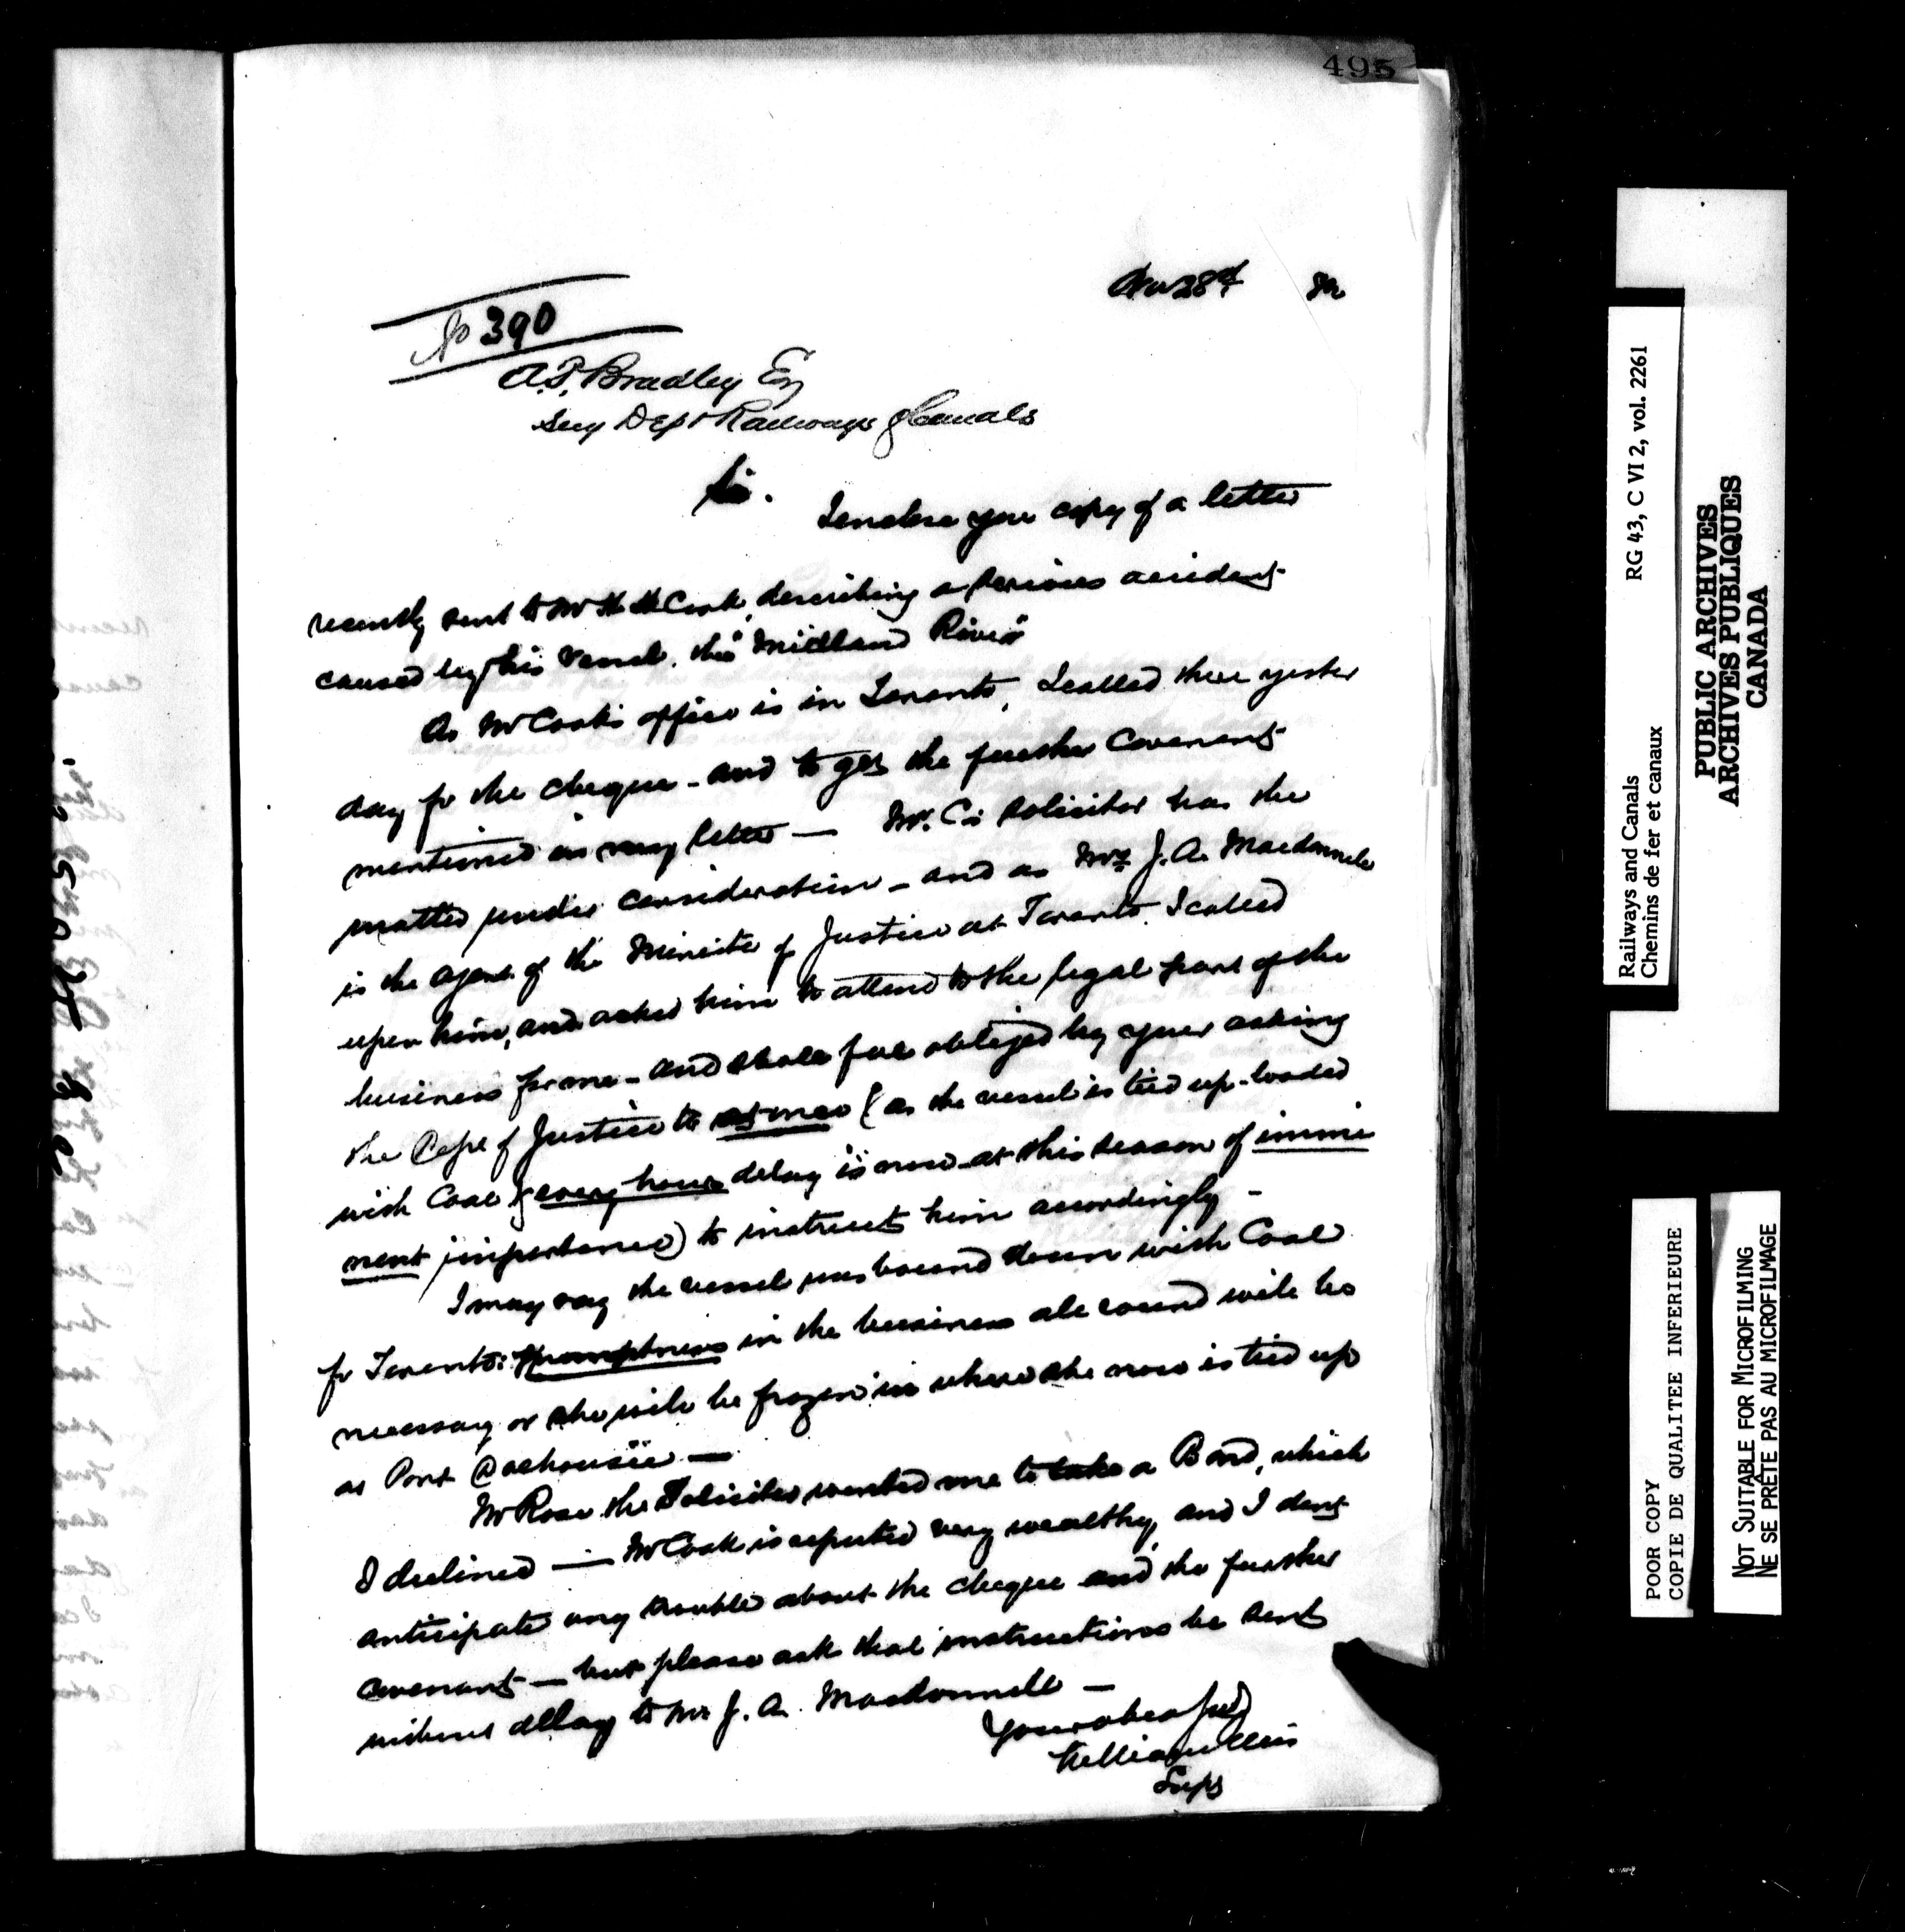 495
Nov 28th 82
No 390
A.P. Bradley Esq
Secy Dept Railways & Canals
Sir.
I enclose you copy of a letter
recently sent to Mr H H Cook, describing a serious accident
caused by his vessel, the "Midland Rover"
As Mr Cook's office is in Toronto, I called there yester
day for the cheque - and to get the further covenant
mentioned in my letter — Mr. C's solicitor has the
matter under consideration - and as Mr J. A. Macdonnell
is the agent of the Minister of Justice at Toronto I called
upon him, and asked him to attend to the legal part of the
business for me - and shall feel obliged by your asking
the Dept of Justice to at once (as the vessel is tied up - loaded
with Coal & every hour delay is now - at this season of immi
nent importance) to instruct him accordingly -
I may say the vessel was bound down with Coal
for Toronto: Promptness in the business all round will be
necessary or she will be frozen in where she now is tied up
at Port Dalhousie —
Mr Rose the Solicitor wanted me to take a Bond, which
I declined — Mr Cook is reputed very wealthy, and I dont
anticipate any trouble about the cheque and the further
covenant — but please ask that instructions be sent
without delay to Mr J. A. Macdonnell —
Your obed
William Ellis
Supt
Railways and Canals RG 43, C VI 2, vol. 2261
Chemins de fer et canaux
PUBLIC ARCHIVES
ARCHIVES PUBLIQUES
CANADA
POOR COPY
COPIE DE QUALITEE INFERIEURE
NOT SUITABLE FOR MICROFILMING
NE SE PRÊTE PAS AU MICROFILMAGE